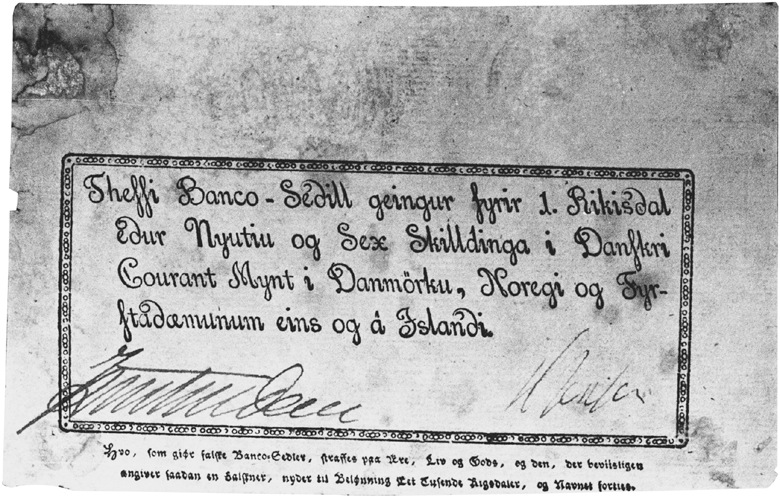 Thessi Banco-Sedill geingur fyrir 1. Rikisdal
edur Nyutiu og Sex Skilldinga i Danskri
Courant Mynt i Danmörku, Noregi og Fyr-
stadæmunum eins og á Islandi.
Hvo, som giør falske Banco-Sedler, straffes paa Ære, Liv og Gods, og den, der beviisligen
angiver saadan en Falskner, nyder til Belønning Eet Tusende Rigsdaler, og Navnet forties.